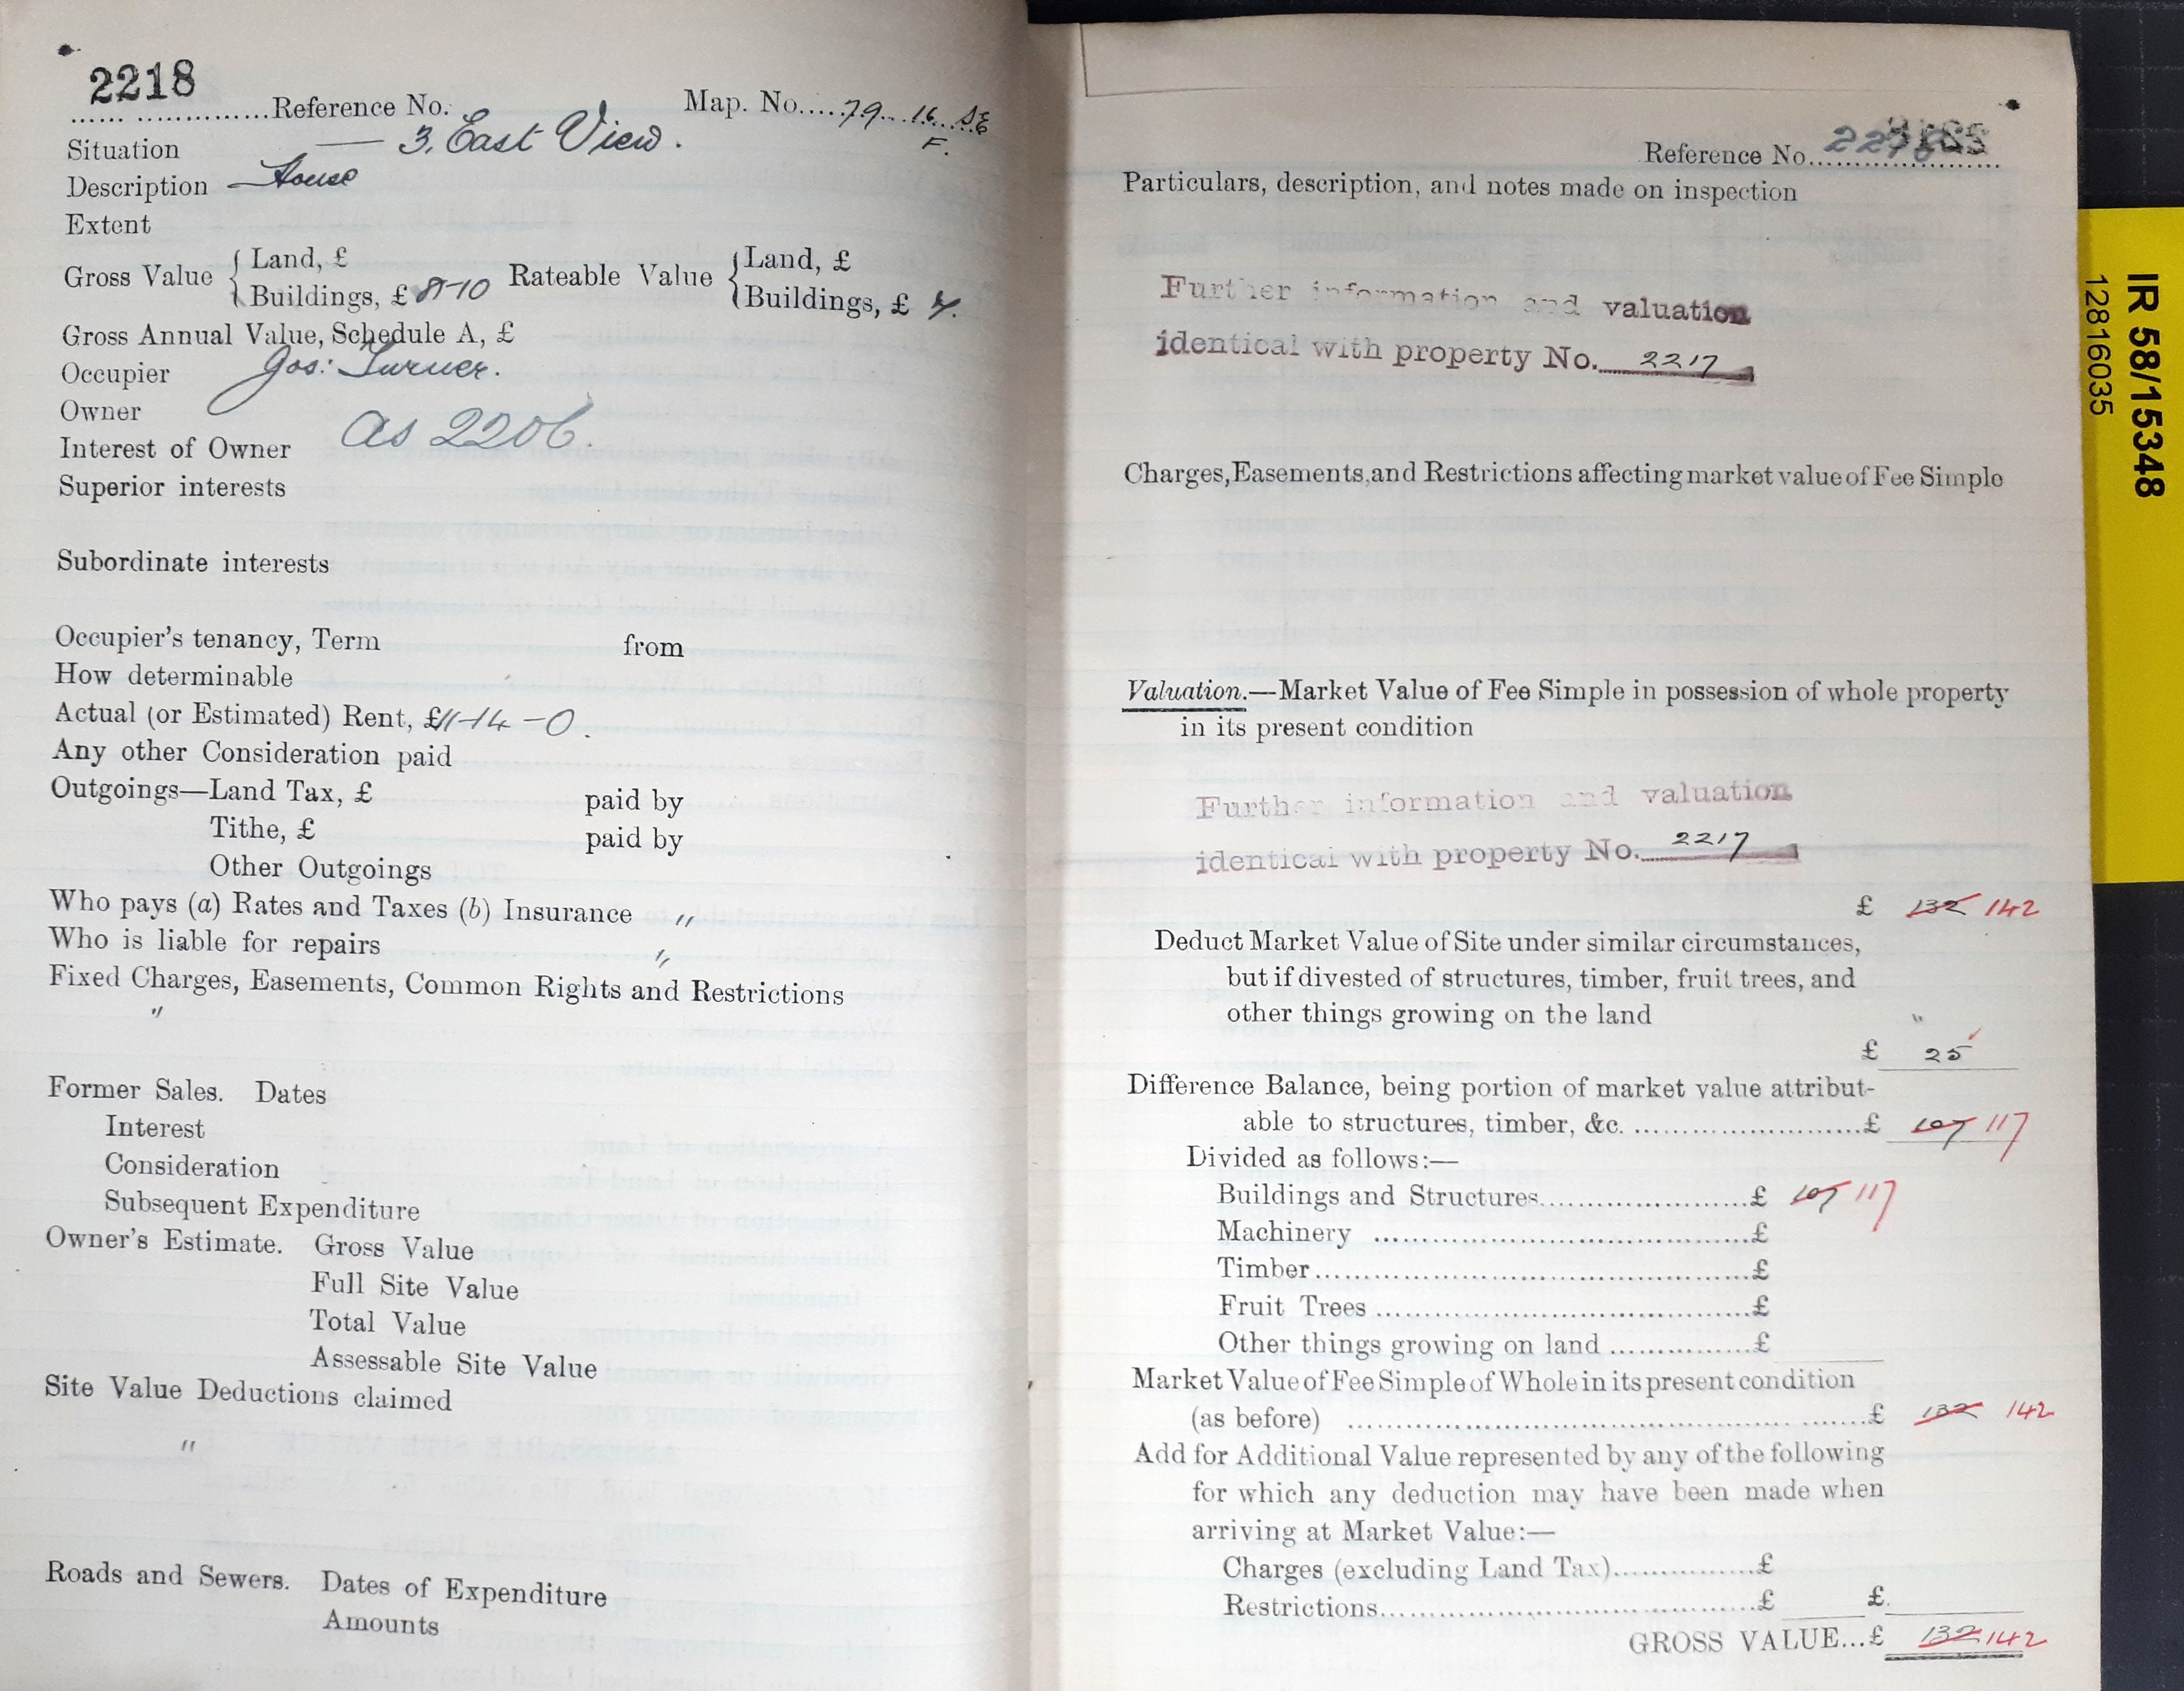 2218
Reference No. Map. No. 79 16 SE
F.
Situation — 3, East View.
Description — House
Extent
Gross Value { Land, £ Rateable Value { Land, £
Buildings, £ 8-10 Buildings, £
Gross Annual Value, Schedule A, £
Occupier Jos: Turner.
Owner
As 2206.
Interest of Owner
Superior interests
Subordinate interests
Occupier's tenancy, Term from
How determinable
Actual (or Estimated) Rent, £11-14-0.
Any other Consideration paid
Outgoings—Land Tax, £ paid by
Tithe, £ paid by
Other Outgoings
Who pays (a) Rates and Taxes (b) Insurance "
Who is liable for repairs "
Fixed Charges, Easements, Common Rights and Restrictions
"
Former Sales. Dates
Interest
Consideration
Subsequent Expenditure
Owner's Estimate. Gross Value
Full Site Value
Total Value
Assessable Site Value
Site Value Deductions claimed
"
Roads and Sewers. Dates of Expenditure
Amounts
Reference No.
Particulars, description, and notes made on inspection
Further information and valuation
identical with property No. 2217
Charges, Easements, and Restrictions affecting market value of Fee Simple
Valuation.—Market Value of Fee Simple in possession of whole property
in its present condition
Further information and valuation
identical with property No. 2217
£ 132 142
Deduct Market Value of Site under similar circumstances,
but if divested of structures, timber, fruit trees, and
other things growing on the land "
£ 25
Difference Balance, being portion of market value attribut-
able to structures, timber, &c. £ 107 117
Divided as follows:—
Buildings and Structures £ 107 117
Machinery £
Timber £
Fruit Trees £
Other things growing on land £
Market Value of Fee Simple of Whole in its present condition
(as before) £ 132 142
Add for Additional Value represented by any of the following
for which any deduction may have been made when
arriving at Market Value:—
Charges (excluding Land Tax) £
Restrictions £ £
GROSS VALUE...£ 132 142
IR 58/15348
12816035